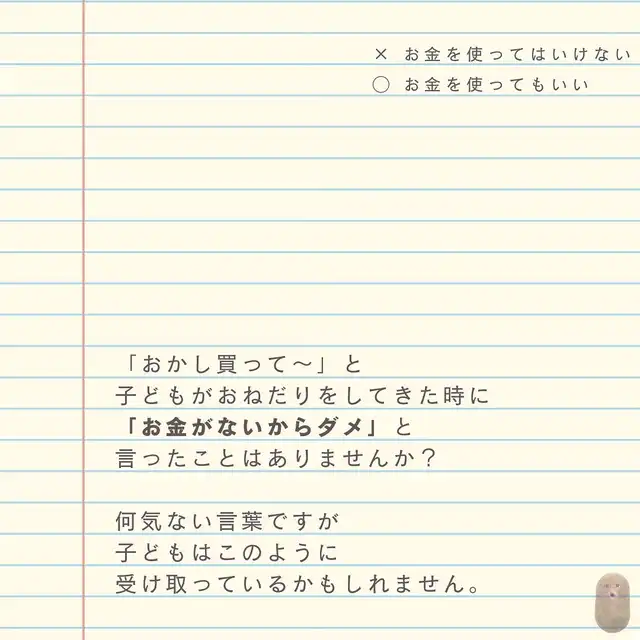 × お金を使ってはいけない
○ お金を使ってもいい
「おかし買って〜」と
子どもがおねだりをしてきた時に
「お金がないからダメ」と
言ったことはありませんか？
何気ない言葉ですが
子どもはこのように
受け取っているかもしれません。